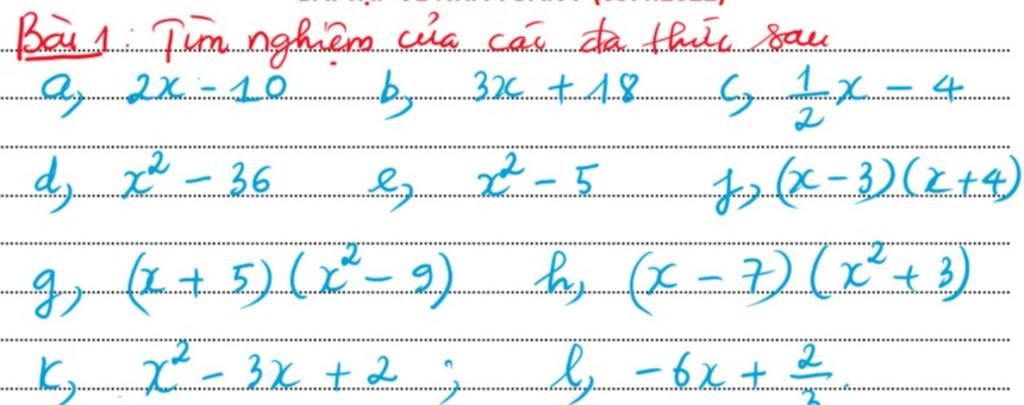 Bài 1: Tìm nghiệm của các đa thức sau
a, 2x - 10 b, 3x + 18 c, \frac{1}{2}x - 4
d, x² - 36 e, x² - 5 f, (x - 3)(x + 4)
g, (x + 5)(x² - 9) h, (x - 7)(x² + 3)
k, x² - 3x + 2 ; l, -6x + \frac{2}{3}.